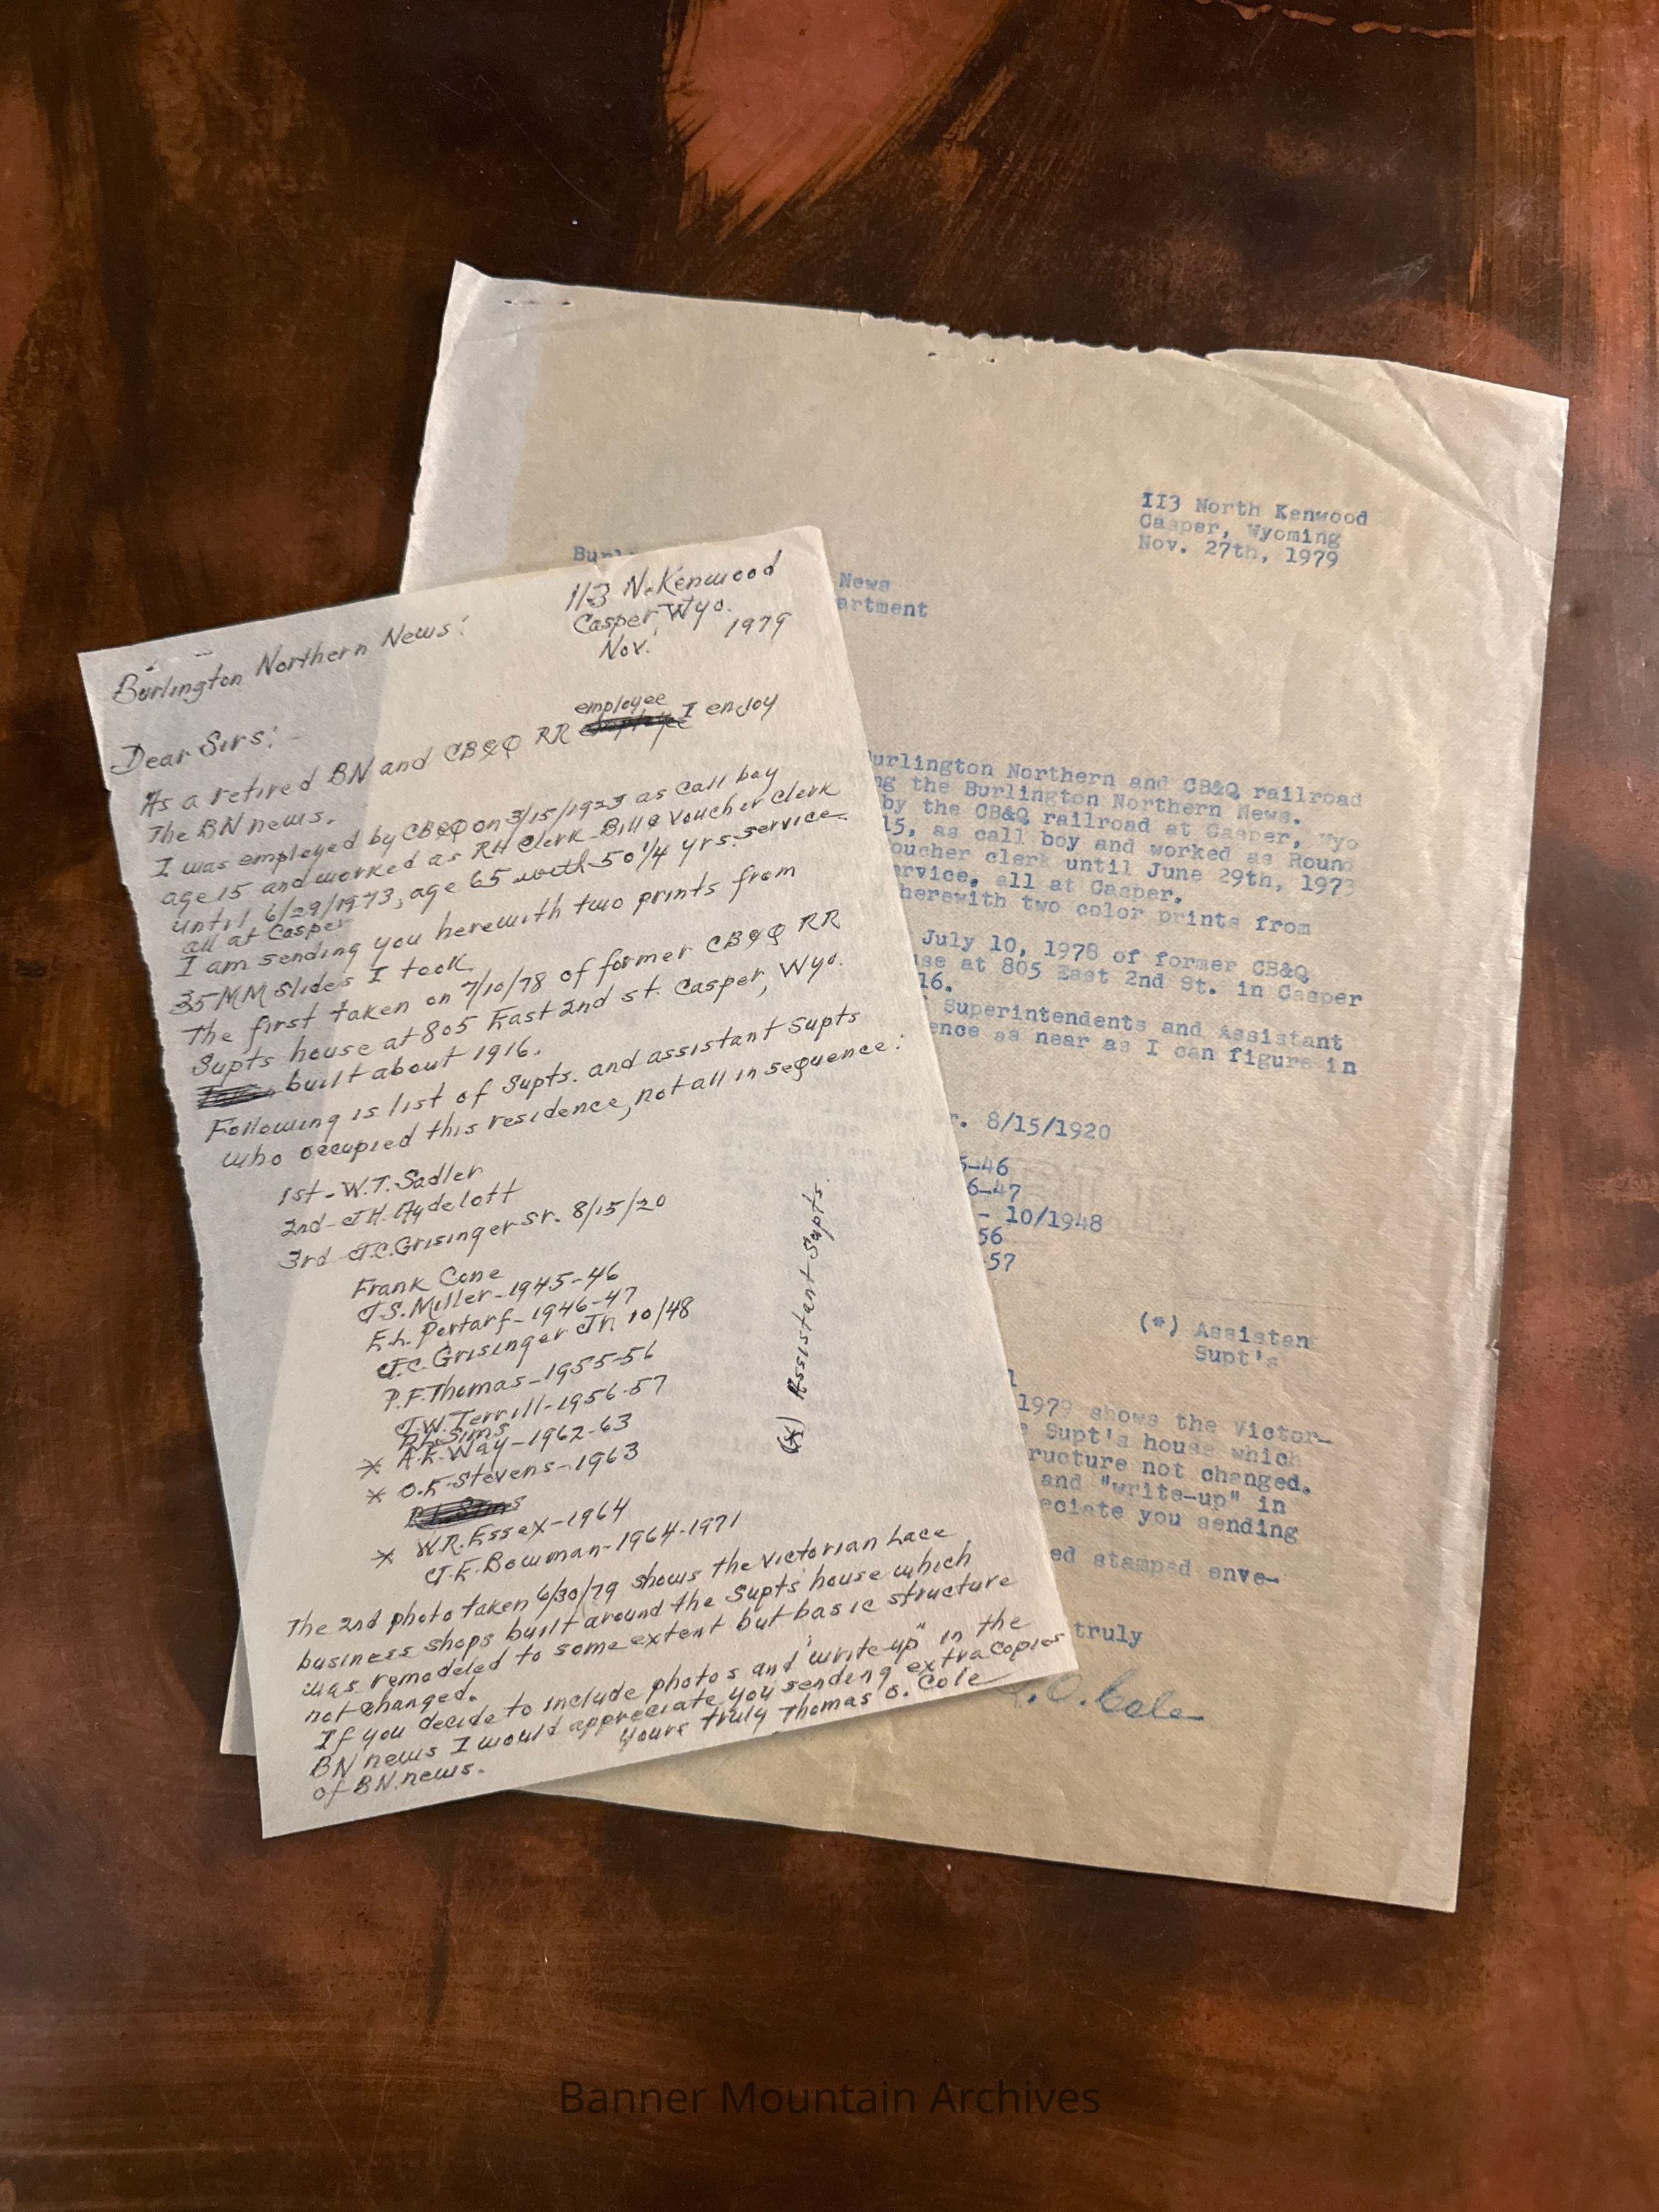 113 N. Kenwood
Casper Wyo.
Nov. 1979
Burlington Northern News:
Dear Sirs:-
As a retired BN and CB&Q RR employee I enjoy
The BN news.
I was employed by CB&Q on 3/15/1923 as call boy
age 15 and worked as RH Clerk Bill & Voucher Clerk
until 6/29/1973, age 65 with 50 1/4 yrs. service
all at Casper
I am sending you herewith two prints from
35 MM slides I took.
The first taken on 7/10/78 of former CB&Q RR
Supts house at 805 East 2nd St. Casper, Wyo.
built about 1916.
Following is list of Supts. and assistant Supts
who occupied this residence, not all in sequence:
1st-W.T. Sadler
2nd-J.H. Aydelott
3rd-J.C. Grisinger Sr. 8/15/20
Frank Cone
J.S. Miller-1945-46
E.L. Portarf-1946-47
J.C. Grisinger Jr. 10/48
P.F. Thomas-1955-56
J.W. Terrill-1956-57
R.L. Sims
* A.E. Way-1962-63
* O.E. Stevens-1963
* W.R. Essex-1964
J.E. Bowman-1964-1971
(*) Assistant Supts.
The 2nd photo taken 6/30/79 shows the Victorian Lace
business shops built around the Supts house which
was remodeled to some extent but basic structure
not changed.
If you decide to include photos and "write-up" in the
BN news I would appreciate you sending extra copies
of BN news.
Yours truly Thomas O. Cole
113 North Kenwood
Casper, Wyoming
Nov. 27th, 1979
News
artment
urlington Northern and CB&Q railroad
ng the Burlington Northern News.
by the CB&Q railroad at Casper, Wyo
15, as call boy and worked as Round
oucher clerk until June 29th, 1973
ervice, all at Casper.
herewith two color prints from
July 10, 1978 of former CB&Q
use at 805 East 2nd St. in Casper
16.
Superintendents and Assistant
ence as near as I can figure in
r. 8/15/1920
5-46
6-47
- 10/1948
56
-57
(*) Assistan
Supt's
1979 shows the Victor-
Supt's house which
ructure not changed.
and "write-up" in
eciate you sending
ed stamped enve-
truly
.O. Cole
Banner Mountain Archives